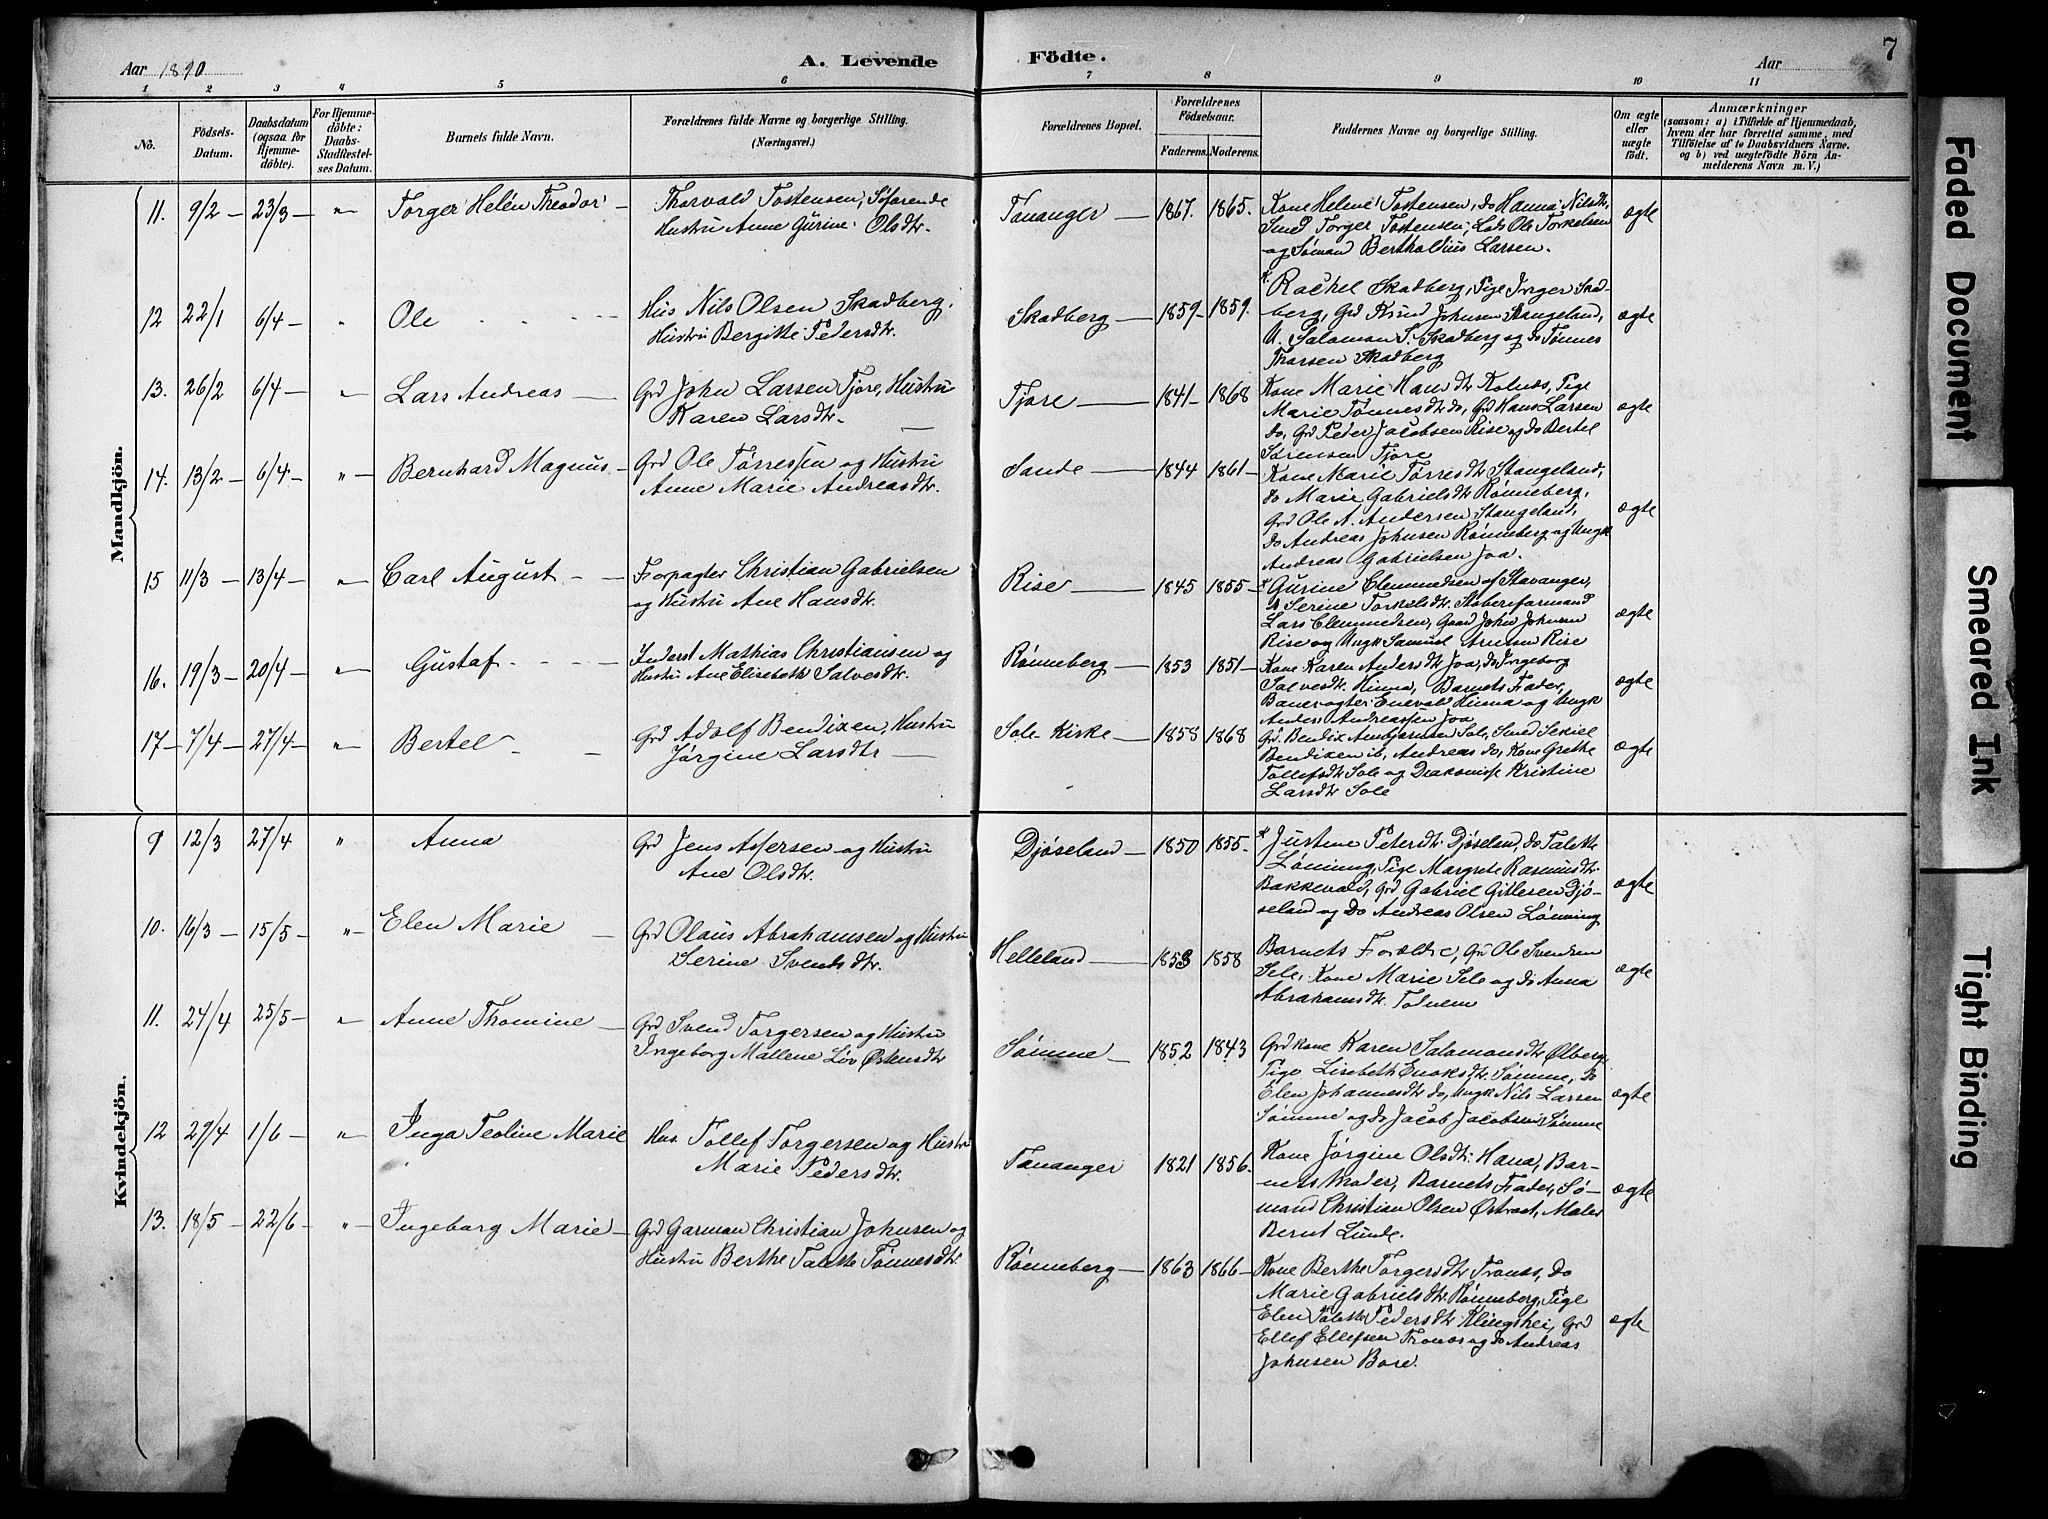 Aar 1890
A. Levende
Födte.
Aar
7
1 2 3 4 5 6 7 8 9 10 11
No.
Födsels-
Datum.
Daabsdatum
(ogsaa for
Hjemme-
döbte).
For Hjemme-
döbte:
Daabs-
Stadfæstel-
ses Datum.
Barnets fulde Navn.
Forældrenes fulde Navne og borgerlige Stilling.
(Næringsvei.)
Forældrenes Bopæl.
Forældrenes
Födselsaar.
Faderens. Moderens.
Faddernes Navne og borgerlige Stilling.
Om ægte
eller
uægte
födt.
Anmærkninger
(saasom: a) i Tilfælde af Hjemmedaab,
hvem der har forrettet samme, med
Tilföielse af to Daabsvidners Navne.
og b) ved uægtefödte Börn An-
melderens Navn m. V.)
Mandkjön.
11. 9/2 — 23/3 — " Torger Helén Theodor —
Thorvald Tostensen, Söfarende
Hustru Anne Gurine Olsdtr.
Tananger — 1867. 1865.
Kone Helene Tostensen, do Hanna Nilsdtr,
Smed Torger Tostensen, Lods Ole Torkelsen
og Sømand Bertholdius Larsen.
ægte
12 22/1 6/4 — " Ole
Hus Nils Olsen Skadberg,
Hustru Bergitte Pedersdtr.
Skadberg — 1859 — 1859.
K. Rachel Skadberg, Pige Inger Skad-
berg, Grd Knud Johnsen Stangeland,
U. Salomon S. Skadberg og do Tønnes
Thorsen Skadberg
ægte
13. 26/2 6/4 — " Lars Andreas —
Grd John Larsen Tjore, Hustru
Karen Larsdtr.
Tjore — 1841 — 1868
Kone Marie Hansdtr Kolnes, Pige
Marie Tønnesdtr do, Grd Hans Larsen
do, Grd Peder Jacobsen Rise og do Bertel
Sørensen Tjore
ægte
14. 13/2 — 6/4 — " Bernhard Magnus. —
Grd Ole Tørressen og Hustru
Anne Marie Andreasdtr.
Sande — 1844 1861 —
Kone Marie Tørresdtr Stangeland,
do Marie Gabrielsdtr Rønneberg,
Grd Ole A. Andersen Stangeland,
do Andreas Johnsen Rønneberg og Ungk
Andreas Gabrielsen Joa.
ægte
15 11/3 — 13/4 — " Carl August —
Forpagter Christian Gabrielsen
og Hustru Ane Hansdtr.
Rise — 1845 1855 —
K Gurine Clemmedsen af Stavanger,
do Serine Torkelsdtr.
Lars Clemmedsen, Gaard John Johnsen
Rise og Ungk Samuel Rise
ægte
16. 19/3 — 20/4 — " Gustaf
Inderst Mathias Christiansen og
Hustru Ane Elisabeth Salvesdtr.
Rønneberg — 1853 1851 —
Kone Karen Andersdtr Joa, do Ingeborg
Salvesdtr Hinna, Barnets Fader,
Enevald Hinna og Ungk
Anders Andreassen Joa
ægte
17 — 7/4 — 27/4 — " Bertel —
Grd Adolf Bendixen, Hustru
Jørgine Larsdtr —
Sole Kirke — 1858 1868
Grd. Bendix Sole, Smed Sekiel
Bendixen ib., Andreas do, Kone Grethe
Tollefsdtr Sole og Diakonisse Kristine
Larsdtr Sole
ægte
Kvindekjön.
9 12/3 27/4 " Anna
Grd Jens Assersen og Hustru
Ane Olsdtr.
Djøseland — 1850 1855.
K Justine Petersdtr. Djøseland, do Talette
Lønning, Pige Margrete Rasmusdtr.
Bakkevold, Grd Gabriel Gitlesen Djø-
seland og do Andreas Olsen Lønning
ægte
10. 16/3 — 15/5 — " Elen Marie —
Grd Olaus Abrahamsen og Hustru
Serine Svendsdtr.
Helleland — 1853 1858
Barnets Forældre, Gr Ole Svendsen
Sele, Kone Marie Sele og do Anna
Abrahamsdtr
ægte
11. 24/4 25/5 — " Anne Thomine —
Grd Svend Torgersen og Hustru
Ingeborg Mallene Lov Østensdtr
Sømme — 1852 1843
Grdkone Karen Salomonsdtr Ølberg,
Pige Lisebeth Enoksdtr. Sømme, do
Elen Johannesdtr do, Ungk Nils Larsen
Sømme og do Jacob Jacobsen Sømme
ægte
12 29/4 1/6 — " Inga Teoline Marie
Hus. Tollef Torgersen og Hustru
Marie Pedersdtr.
Tananger 1821 1856.
Kone Jørgine Olsdtr. Hana, Bar-
nets Moder, Barnets Fader, Sø-
mand Christian Olsen Østraat, Maler
Bernt Lunde.
ægte
13. 18/5 — 22/6 — " Ingeborg Marie —
Grd Garman Christian Johnsen og
Hustru Berthe Talette Tønnesdtr.
Rønneberg — 1863 1866 —
Kone Berthe Torgersdtr Tronæs, do
Marie Gabrielsdtr Rønneberg, Pige
Elen Talette Pedersdtr Klingshei, Grd
Ellef Ellefsen Tronæs og do Andreas
Johnsen Bore.
ægte
Faded Document
Smeared Ink
Tight Binding